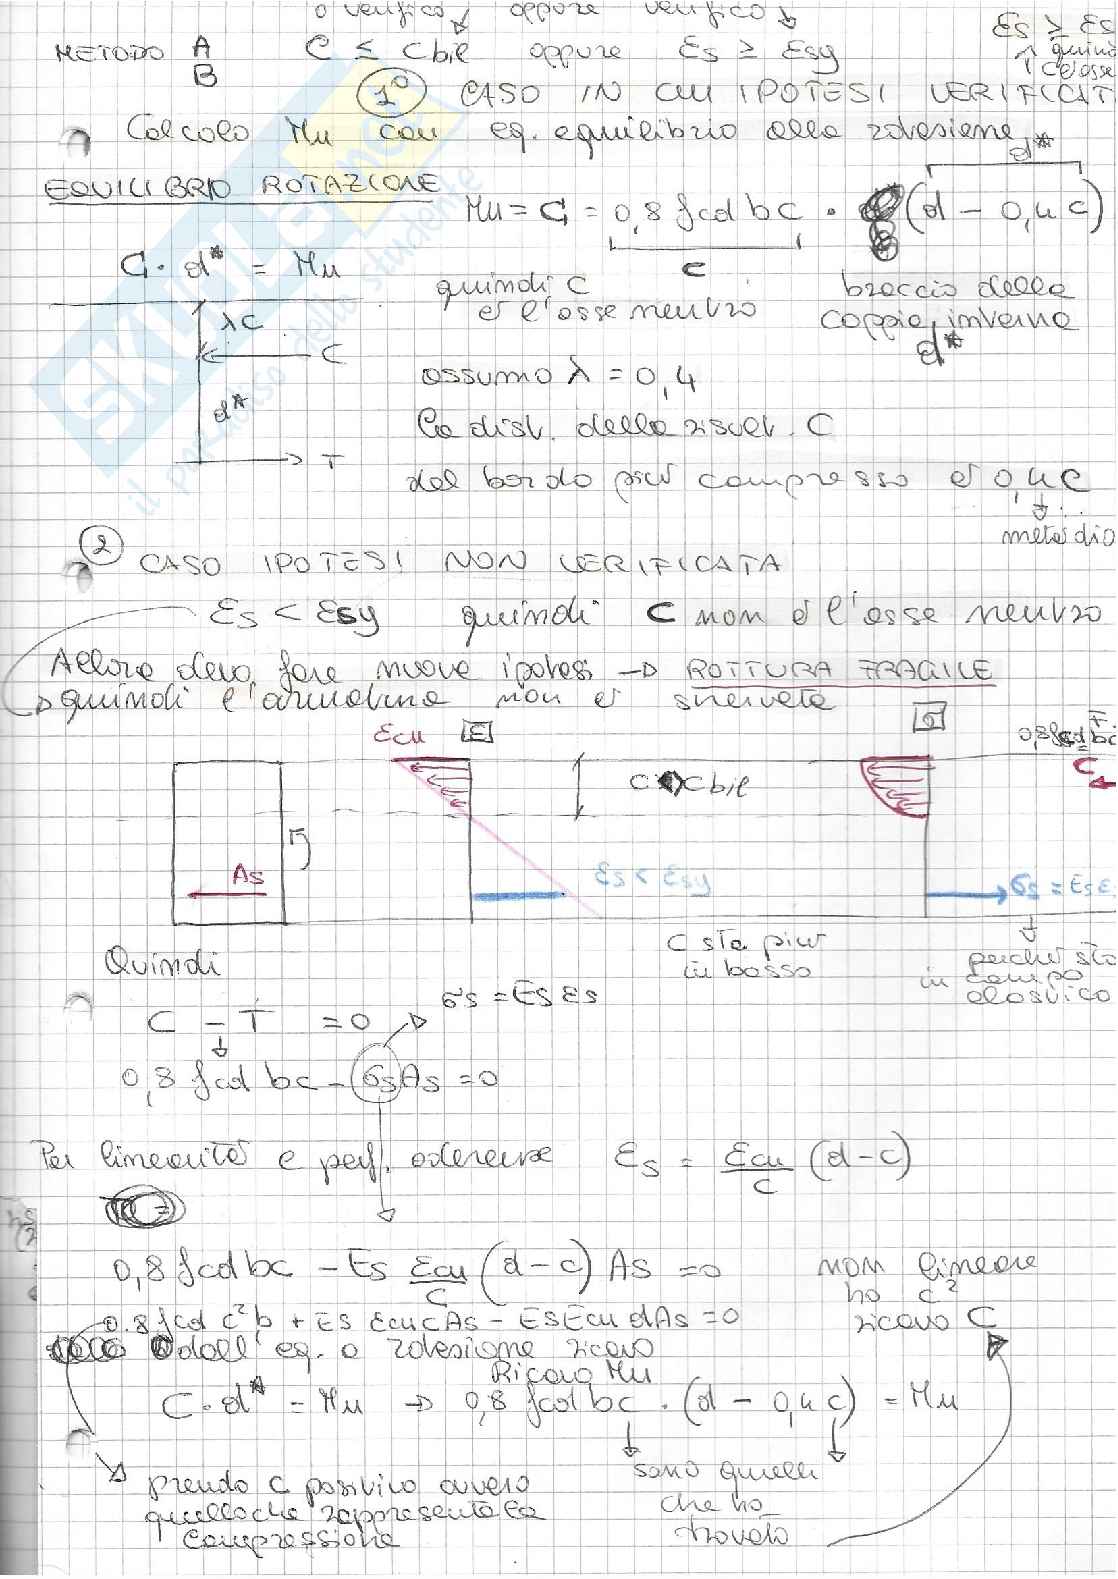 o verifico, oppure verifico
METODO A C ≤ Cbil oppure Es ≥ Esy
B
Es ≥ Es
quin
c è asse
1° CASO IN CUI IPOTESI VERIFICAT
Calcolo Mu con eq. equilibrio alla rotazione
EQUILIBRIO ROTAZIONE
d*
Mu = C = 0,8 fcd bc · (d - 0,4 c)
C
C · d* = Mu
quindi C
è l'asse neutro
braccio della
coppia interna
d*
λC
C
d*
T
assumo λ = 0,4
la dist. della risult. C
dal bordo più compresso è 0,4c
metà di 0
2 CASO IPOTESI NON VERIFICATA
Es < Esy quindi C non è l'asse neutro
Allora devo fare nuova ipotesi → ROTTURA FRAGILE
quindi l'armatura non è snervata
Ecu E
σ
0,8fcd bc
C
C Cbil
As
Es < Esy
σs = Es E
Quindi
C sta più
in basso
perché sto
in campo
elastico
σs = Es Es
C - T = 0
0,8 fcd bc - σs As = 0
Per linearità e perf. aderenza Es = Ecu/c (d-c)
0,8 fcd bc - Es Ecu/c (d-c) As = 0
non lineare
ho c²
ricavo C
0.8 fcd c²b + Es Ecu c As - Es Ecu d As = 0
dall'eq. a rotazione ricavo
Ricavo Mu
C · d* = Mu → 0,8 fcd bc · (d - 0,4 c) = Mu
prendo C positivo ovvero
quello che rappresenta la
compressione
sono quelli
che ho
trovato
SKUOLA
il paradiso dello studente